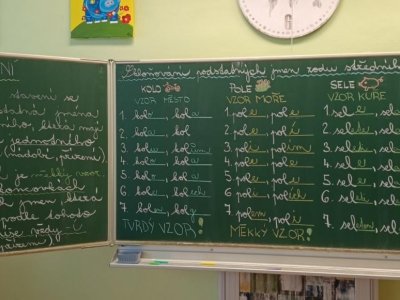 NÍ
stavení se
jména
která mají
jednotného
je měkký vzor.
koncovkách
jen která
podle tohoto
píše vždy -í
Skloňování podstatných jmen rodu středního
KOLO POLE SELE
VZOR MĚSTO VZOR MOŘE VZOR KUŘE
1. kolo, kola pole, pole 1. sele, sel
2. kola, kol pole, polí 2. selete, sel
3. kolu, kolům poli, polím 3. seleti, sel
4. kolo, kola pole, pole 4. sele, sel
5. kolo, kola pole, pole 5. sele, sel
6. kole, kolech poli, polích 6. seleti, sel
7. kolem, koly polem, poli 7. seletem, sel
TVRDÝ VZOR! MĚKKÝ VZOR!